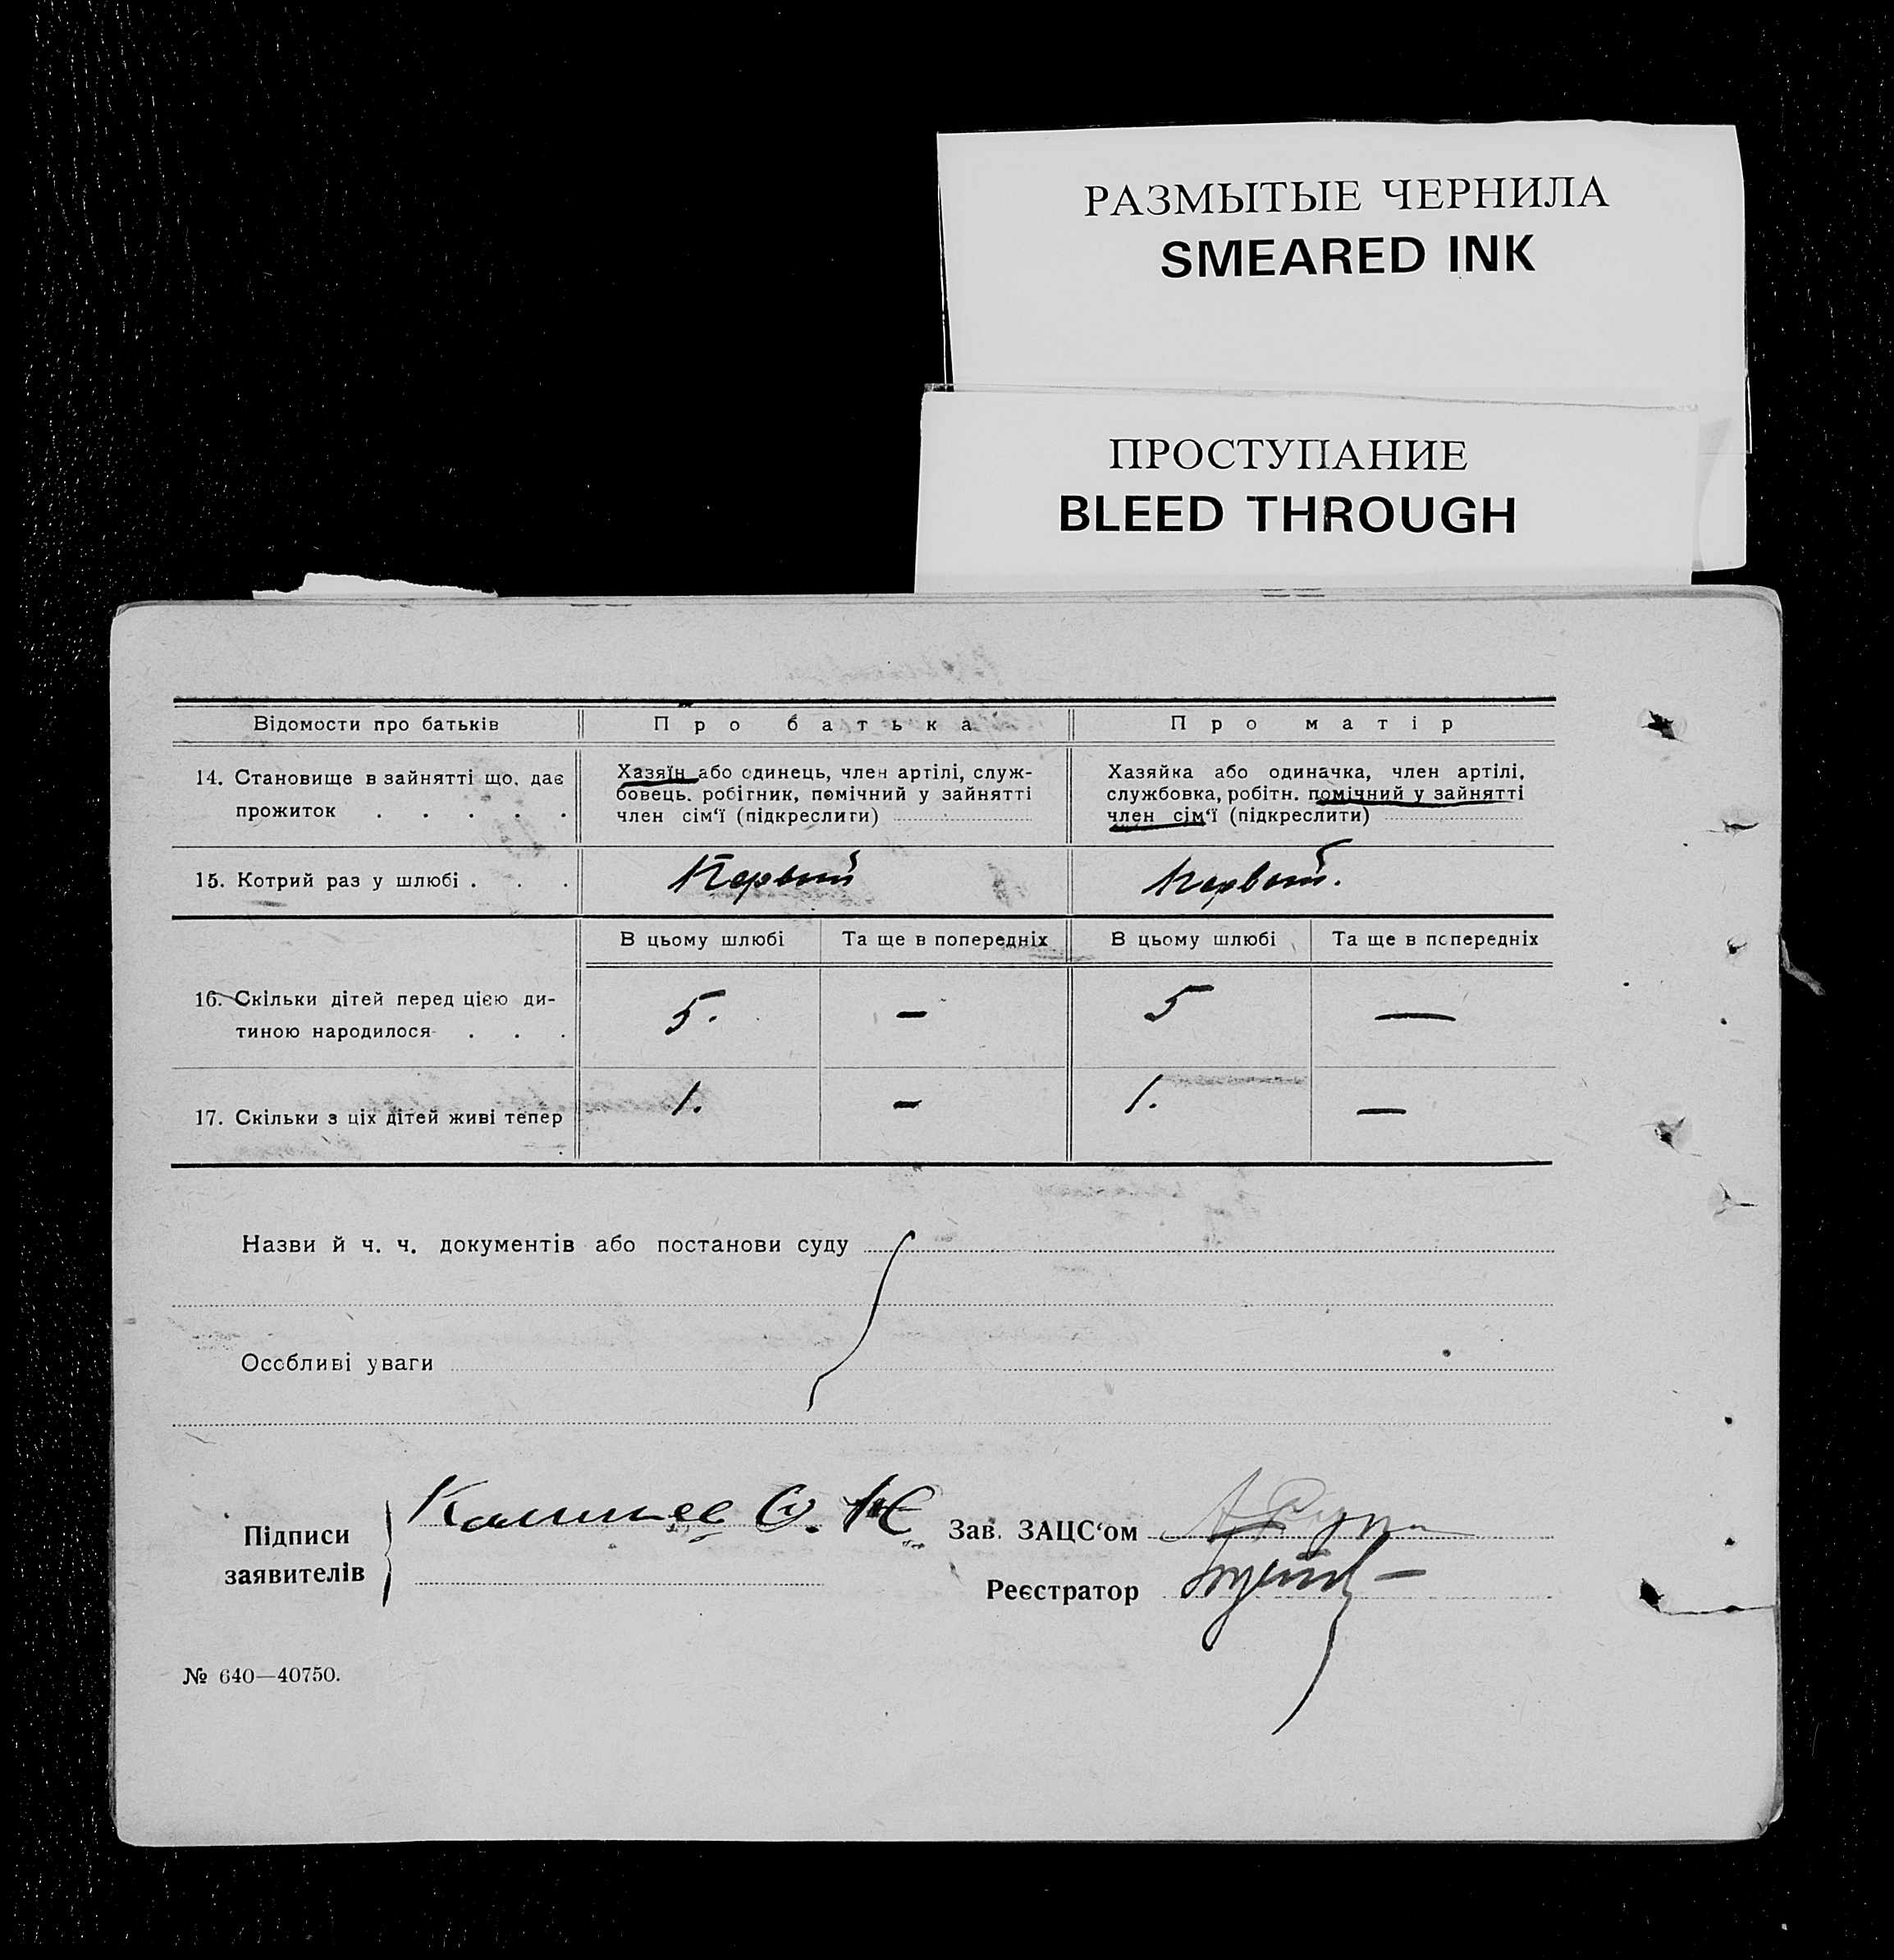 РАЗМЫТЫЕ ЧЕРНИЛА
SMEARED INK
ПРОСТУПАНИЕ
BLEED THROUGH
Відомости про батьків
Про батька
Про матір
14. Становище в зайнятті що дає
прожиток . . . . .
Хазяїн або одинець, член артілі, служ-
бовець. робітник, помічний у зайнятті
член сім‘ї (підкреслити)
Хазяйка або одиначка, член артілі,
службовка, робітн. помічний у зайнятті
член сім‘ї (підкреслити)
15. Котрий раз у шлюбі . . .
Первый
Первый.
В цьому шлюбі
Та ще в попередніх
В цьому шлюбі
Та ще в попередніх
16. Скільки дітей перед цією ди-
тиною народилося . . .
5.
—
5
—
17. Скільки з ціх дітей живі тепер
1.
—
1.
—
Назви й ч. ч. документів або постанови суду
Особливі уваги
Підписи
заявителів
Зав. ЗАЦС‘ом
Реєстратор
№ 640—40750.